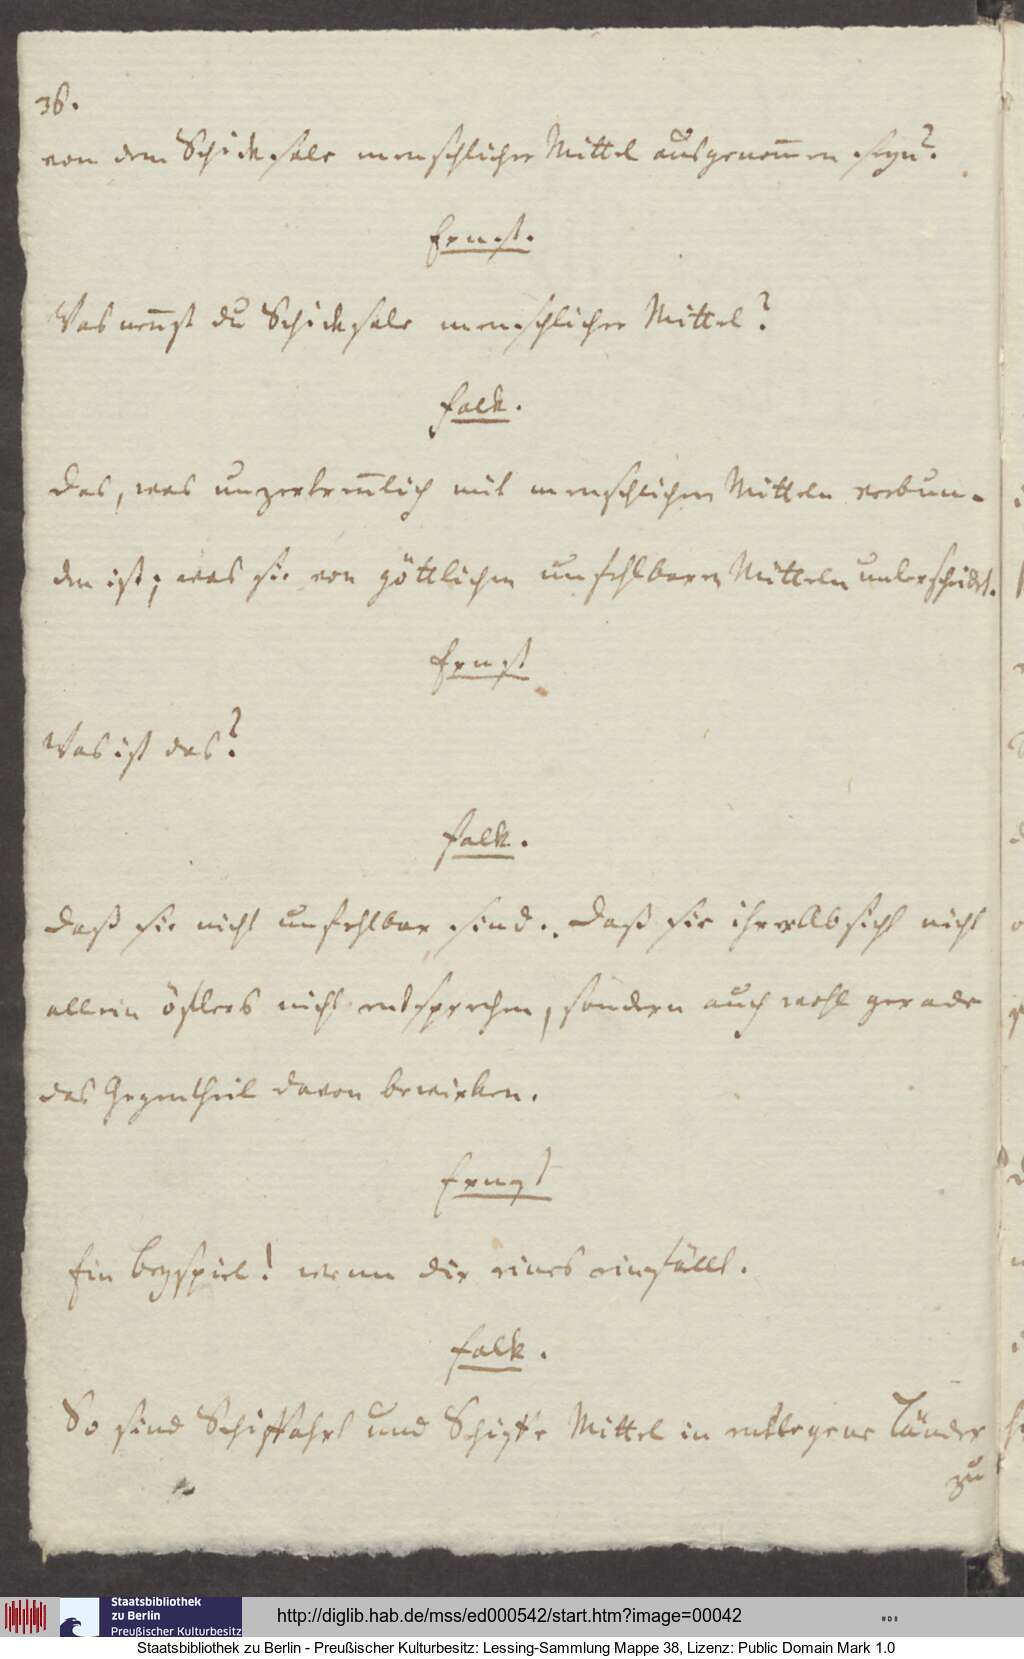 36.
von dem Schicksale menschlicher Mittel ausgenom̅en seyn?
Ernst.
Was nen̅st du Schicksale menschlicher Mittel?
Falk.
Das, was unzertren̅lich mit menschlichen Mitteln verbun-
den ist; was sie von göttlichen unfehlbaren Mitteln unterscheidet.
Ernst
Was ist das?
Falk.
Daß sie nicht unfehlbar sind. Daß sie ihrer Absicht nicht
allein öfters nicht entsprechen, sondern auch wohl gerade
das Gegentheil davon bewirken.
Ernst
Ein Beyspiel! wenn dir eines einfällt.
Falk.
So sind Schiffahrt und Schiffe Mittel in entlegene Länder
zu
Staatsbibliothek
zu Berlin
Preußischer Kulturbesitz
http://diglib.hab.de/mss/ed000542/start.htm?image=00042
Staatsbibliothek zu Berlin - Preußischer Kulturbesitz: Lessing-Sammlung Mappe 38, Lizenz: Public Domain Mark 1.0